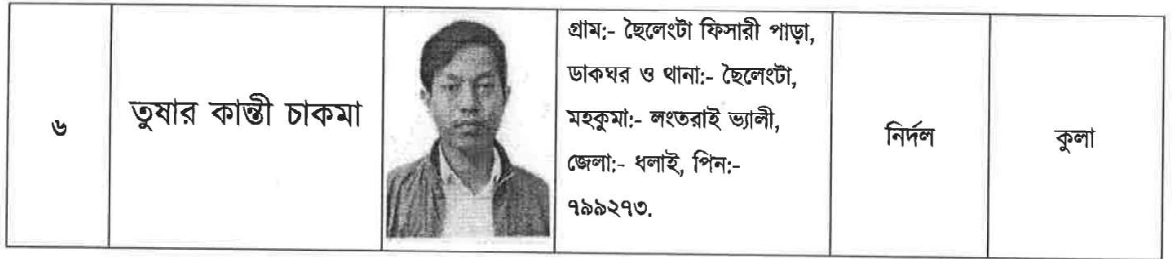 ৬
তুষার কান্তী চাকমা
গ্রাম:- ছৈলেংটা ফিসারী পাড়া,
ডাকঘর ও থানা:- ছৈলেংটা,
মহকুমা:- লংতরাই ভ্যালী,
জেলা:- ধলাই, পিন:-
৭৯৯২৭৩.
নির্দল
কুলা